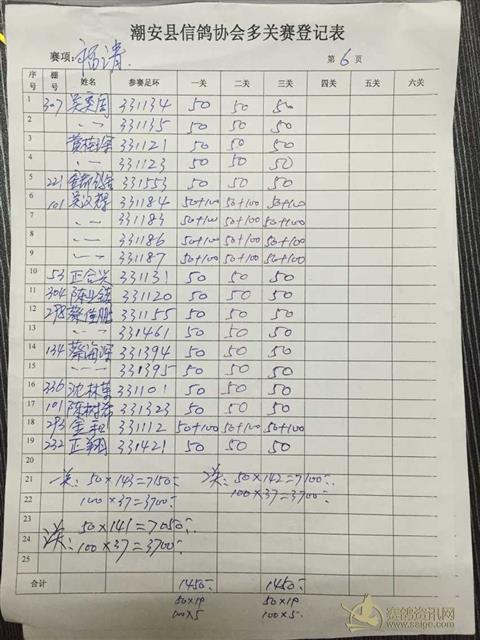 潮安县信鸽协会多关赛登记表
赛项: 福清 第 6 页
序号 棚号 姓名 参赛足环 一关 二关 三关 四关 五关 六关
1 307 331134 50 50 50
2 331135 50 50 50
3 331121 50 50 50
4 331123 50 50 50
5 221 331553 50 50 50
6 101 331184 50+100 50+100 50+100
7 331183 50+100 50+100 50+100
8 331186 50+100 50+100 50+100
9 331187 50+100 50+100 50+100
10 53 正合兴 331131 50 50 50
11 304 331120 50 50 50
12 298 蔡佳鹏 331155 50 50 50
13 331461 50 50 50
14 134 蔡海深 331394 50 50 50
15 331395 50 50 50
16 236 沈林 331101 50 50 50
17 101 陈树 331323 50 50 50
18 293 331112 50+100 50+100 50+100
19 232 正翔 331421 50 50 50
20
21 一关: 50×143=7150 50×142=7100
22 100×37=3700 100×37=3700
23 50×141=7050
24 100×37=3700
25
合计 1450 1450
50×19 50×19
100×5 100×5
赛鸽资讯网
www.saige.com